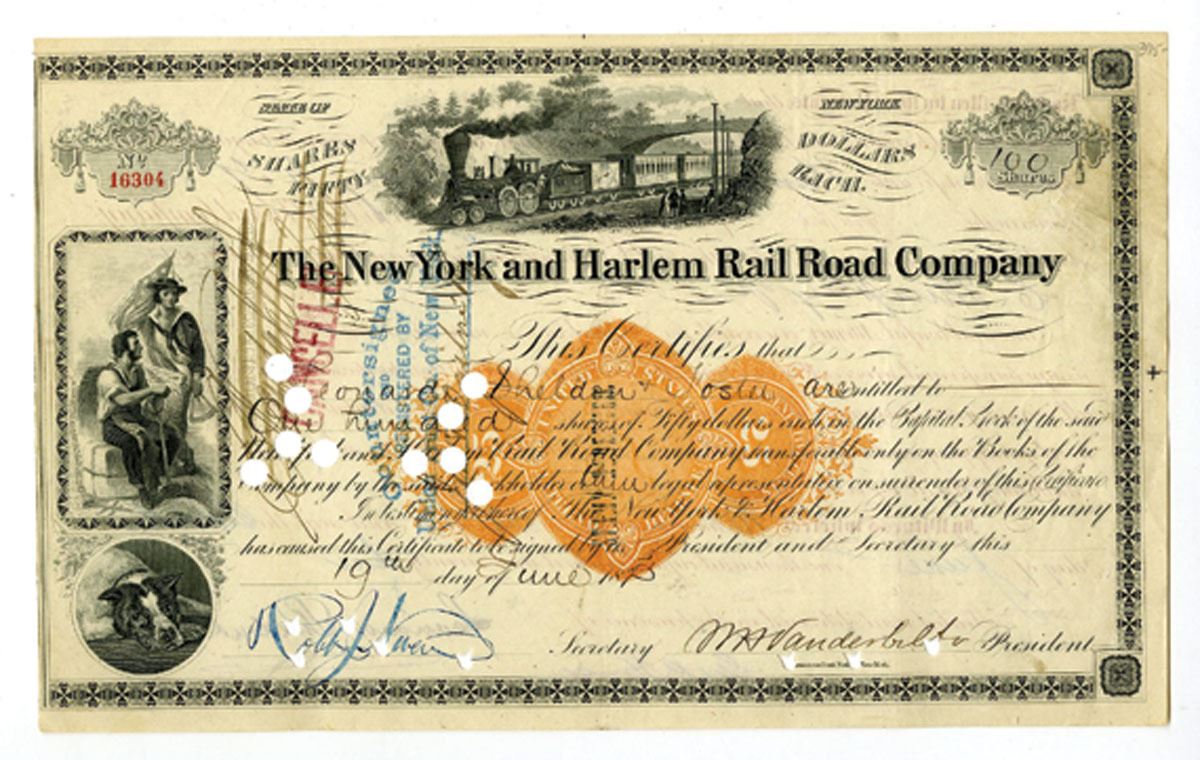 STATE OF
NEW YORK
No
16304
SHARES
FIFTY
DOLLARS
EACH.
100
Shares
The New York and Harlem Rail Road Company
CANCELLE
Countersigned
REGISTERED BY
of New York
This Certifies that
Sheldon & are entitled to
One hundred shares of Fifty dollars each in the Capital Stock of the said
Rail Road Company transferable only on the Books of the
Company by the said or legal representative on surrender of this Certificate
UNITED STATES
25
In testimony whereof The New York & Harlem Rail Road Company
has caused this Certificate to be signed by the President and Secretary this
19th day of June
Secretary
W H Vanderbilt
President